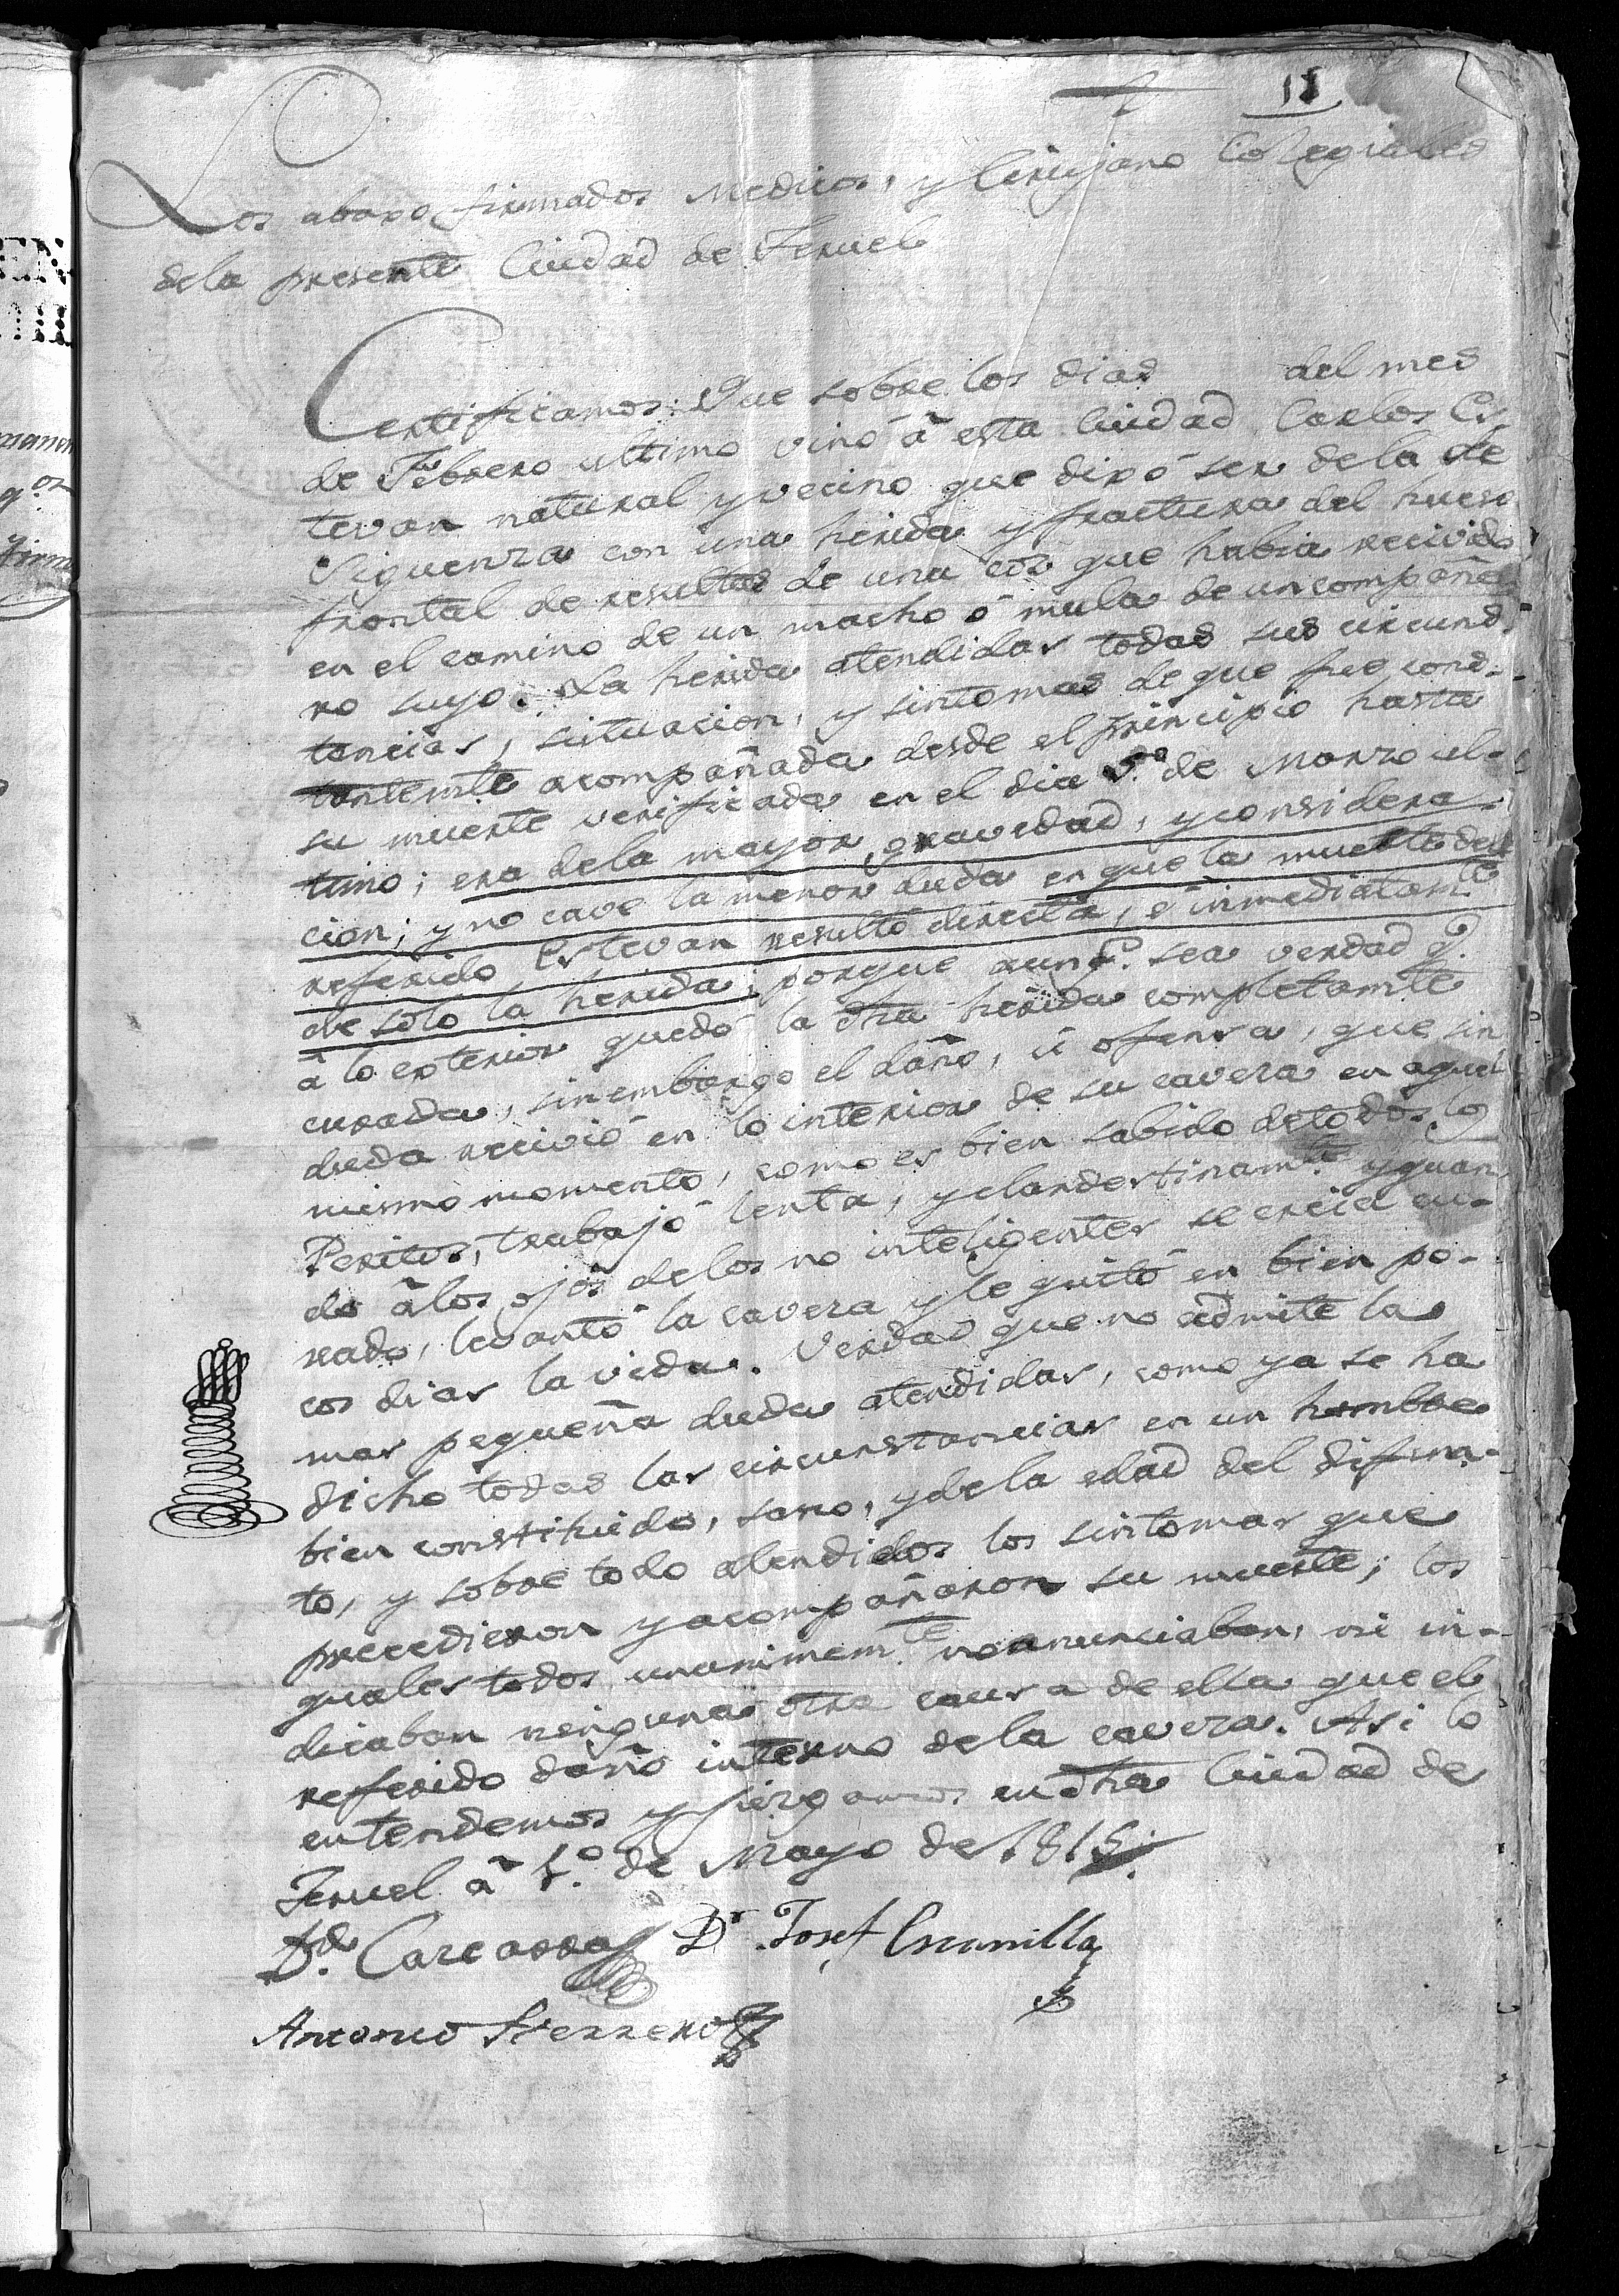 18
Los abaxo firmados Medicos, y Cirujano Colegiales
dela presente Ciudad de Teruel
Certificamos: Que sobre los dias del mes
de Febrero ultimo vino â esta Ciudad Carlos Es-
tevan natural y vecino que dixo ser dela de
Siguenza con una herida y fractura del hueso
frontal de resultas de una coz que habia recivido
en el camino de un macho ó mula de un compañe-
ro suyo. La herida atendidas todas sus circuns-
tancias, situacion, y sintomas de que fue cons-
tantemte acompañada desde el principio hasta
su muerte verificada en el dia 5.º de Marzo ul-
timo; era dela mayor gravedad, y considera-
cion; y no cave la menor duda en que la muerte del
referido Estevan resultó directa, é inmediatamte
de solo la herida; porque aunq.e sea verdad q.e
â lo exterior quedó la dha herida completamte
curada, sin embargo el daño, ú ofensa, que sin
duda recivió en lo interior de su caveza en aquel
mismo momento, como es bien sabido de todos lo
Peritos, trabajó lenta, y clandestinamte y quan
do âlos ojos delos no inteligentes se creia cu-
rado, levantó la caveza y le quitó en bien po-
cos dias la vida. Verdad que no admite la
mas pequeña duda atendidas, como ya se ha
dicho todas las circunstancias en un hombre
bien constituido, sano, y dela edad del difun-
to, y sobre todo atendidos los sintomas que
precedieron y acompañaron su muerte; los
quales todos unanimemte no anunciaban, ni in-
dicaban ninguna otra causa de ella que el
referido daño interno dela caveza. Asi lo
entendemos y juzgamos en dha Ciudad de
Teruel â 1.º de Mayo de 1815.
D.r Josef Escamilla
Antonio Herrero